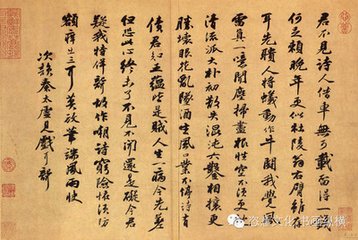 君不見詩人借車無可載留得一錢
何足賴晚年更似杜陵翁右臂雖存
耳先聵人將蟻動作牛鬥我覺風
雷真一噫聞塵掃盡根性空不須更枕
清流派大朴初散失混沌六鑿相攘更
勝壞眼花亂墜酒生風口業不停詩有
債君知五蘊皆是賊人生一病今先差
但恐此心終未了不見不聞還是礙今君
疑我特佯聾故作嘲詩窮險怪須防
額癢出三耳莫放筆端風雨快
次韻秦太虛見戲耳聾
书画纵横